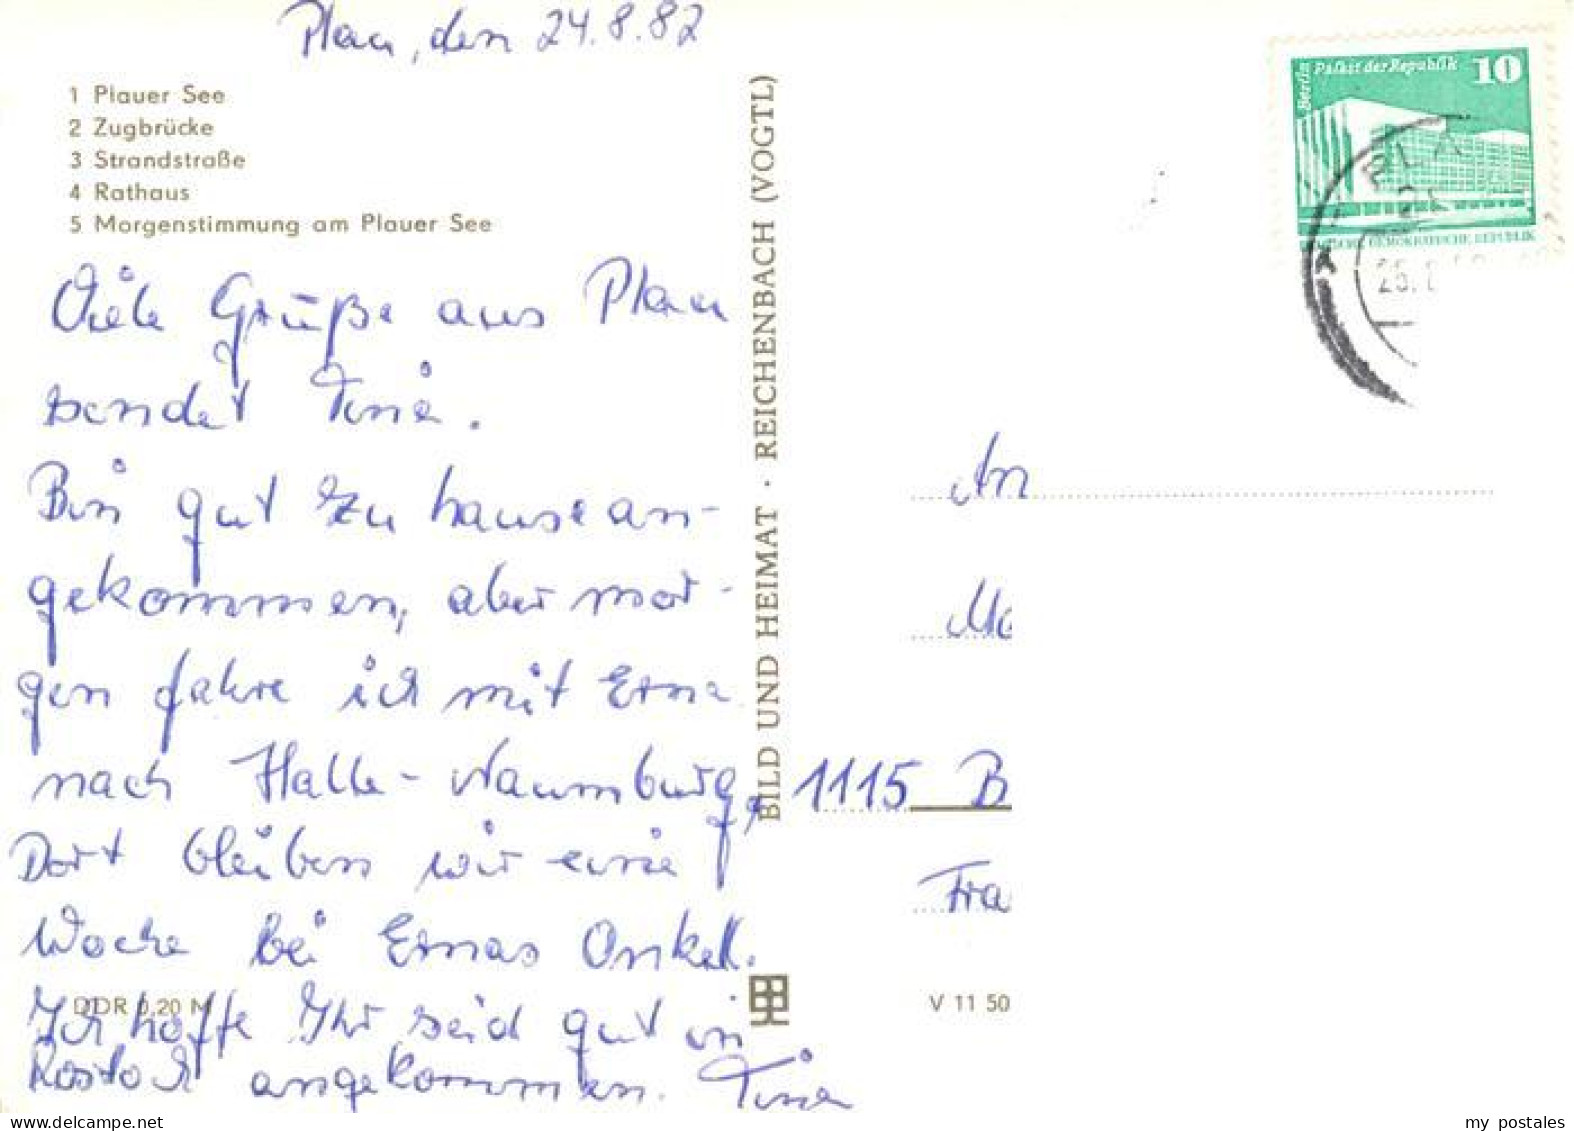 Plau, den 24.8.82
1 Plauer See
2 Zugbrücke
3 Strandstraße
4 Rathaus
5 Morgenstimmung am Plauer See
Viele Grüße aus Plau
sendet Tina.
Bin gut zu hause an-
gekommen, aber mor-
gen fahre ich mit Erna
nach Halle-Naumburg,
Dort bleiben wir eine
Woche bei Ernas Onkel.
Ich hoffe Ihr seid gut in
Rostock angekommen. Tina
DDR 0,20 M
BILD UND HEIMAT · REICHENBACH (VOGTL)
Berlin Palast der Republik 10
DEUTSCHE DEMOKRATISCHE REPUBLIK
PLA
An
1115 B
Fra
V 11 50
my postales